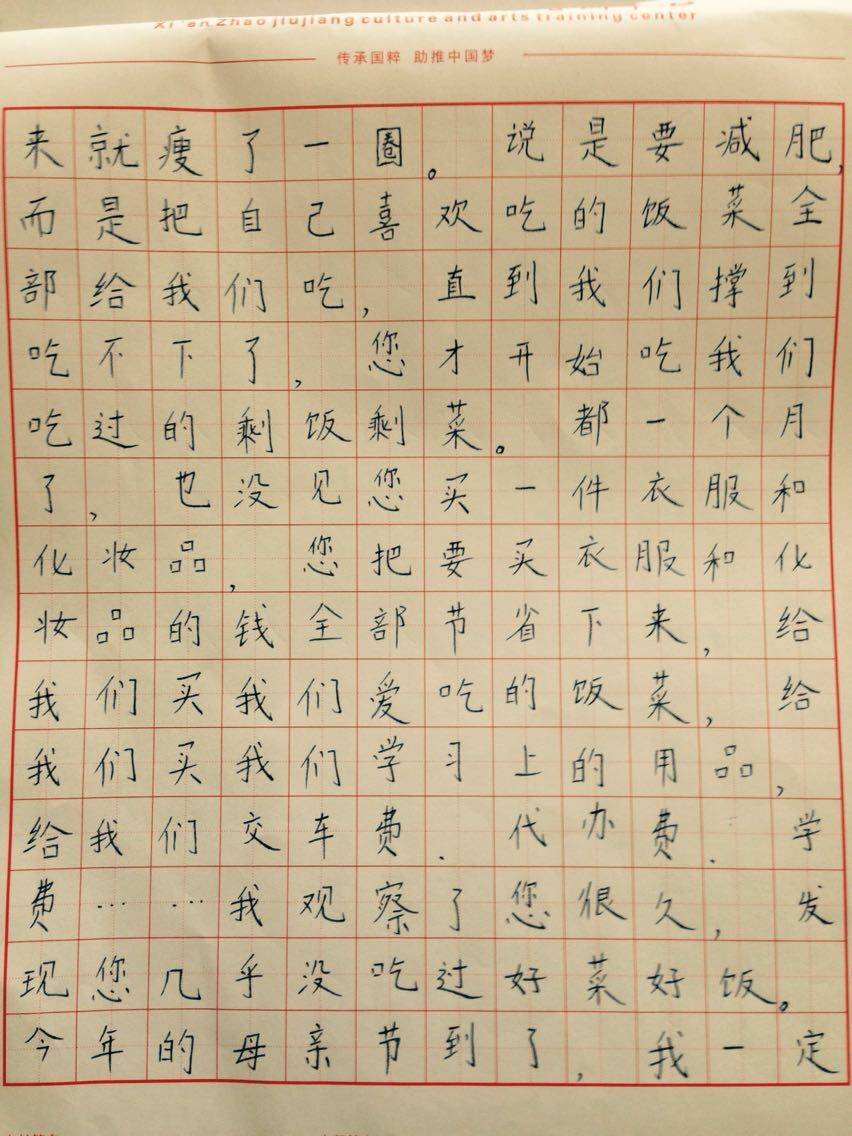 Xi'an Zhao jiujiang culture and arts training center
传承国粹 助推中国梦
来就瘦了一圈。说是要减肥,
而是把自己喜欢吃的饭菜全
部给我们吃,直到我们撑到
吃不下了,您才开始吃我们
吃过的剩饭剩菜。都一个月
了,也没见您买一件衣服和
化妆品,您把要买衣服和化
妆品的钱全部节省下来,给
我们买我们爱吃的饭菜,给
我们买我们学习上的用品,
给我们交车费.代办费.学
费……我观察了您很久,发
现您几乎没吃过好菜好饭。
今年的母亲节到了,我一定